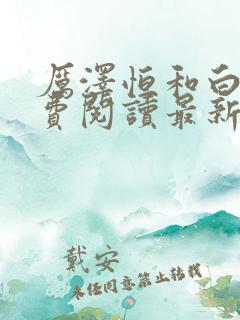 厲澤恒和白
費閱讀最新
戴安
未经同意禁止转载